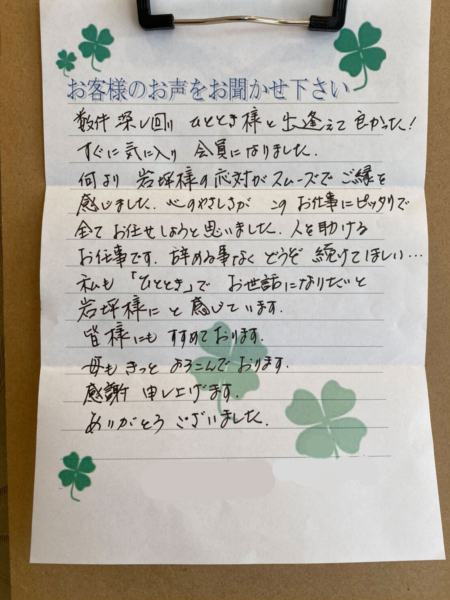 お客様のお声をお聞かせ下さい
数件 探し回り ひととき様と出逢えて良かった!
すぐに気に入り 会員になりました.
何より 岩坪様の応対がスムーズで ご縁を
感じました. 心のやさしさが このお仕事にピッタリで
全てお任せしようと思いました. 人を助ける
お仕事です. 辞める事なく どうぞ 続けてほしい…
私も「ひととき」で お世話になりたいと
岩坪様にと 感じています.
皆様にも すすめております.
母も きっと よろこんでおります.
感謝 申し上げます.
ありがとう ございました.